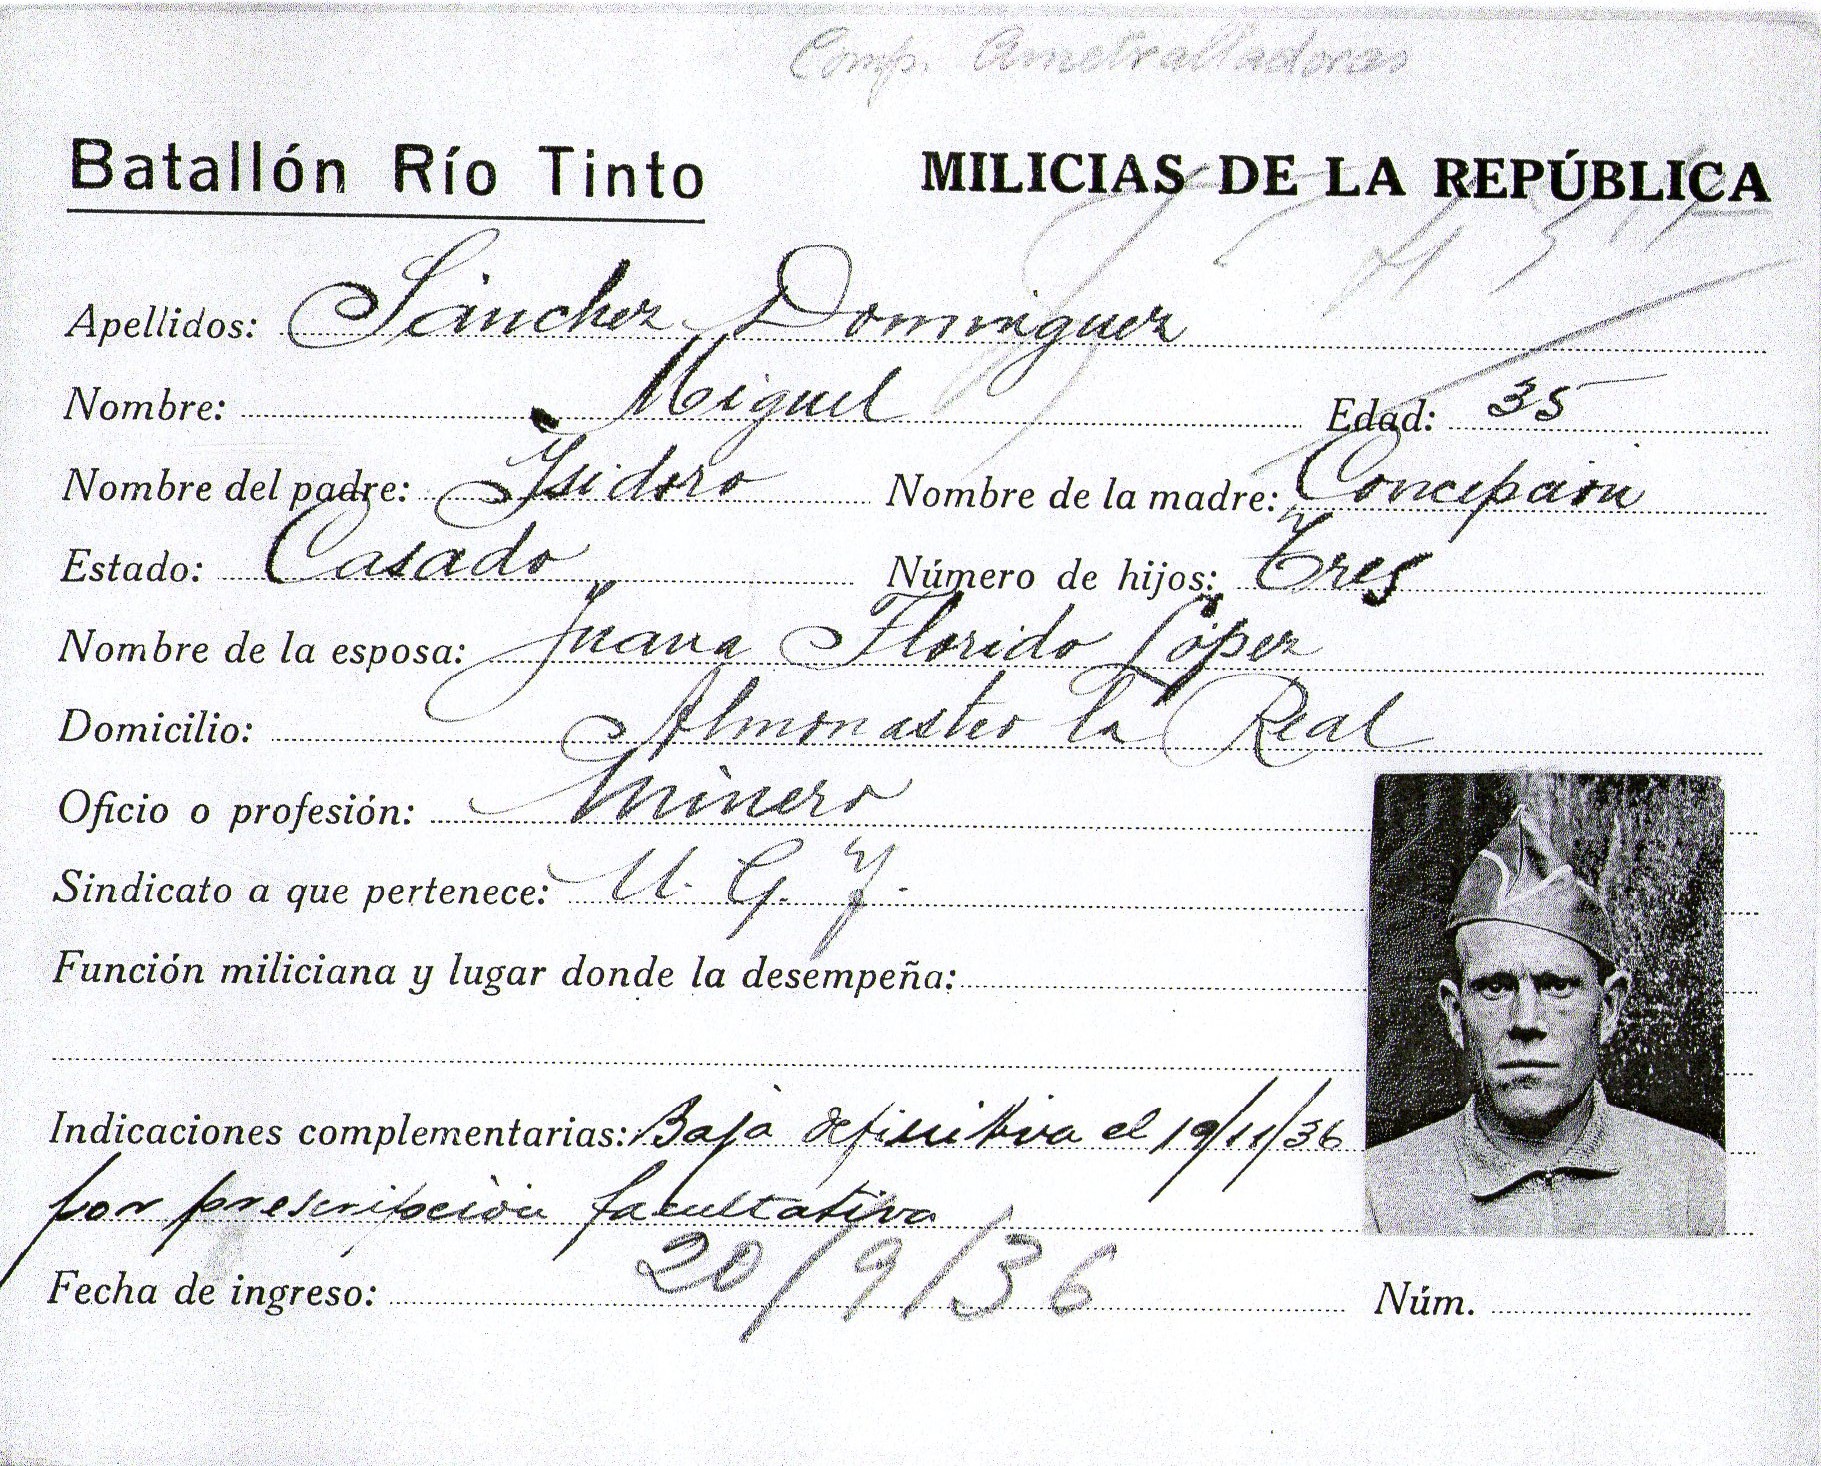 Comp. Ametralladoras
Batallón Río Tinto MILICIAS DE LA REPÚBLICA
Apellidos: Sánchez Dominguez
Nombre: Miguel Edad: 35
Nombre del padre: Isidoro Nombre de la madre: Concepción
Estado: Casado Número de hijos: Tres
Nombre de la esposa: Juana Florido López
Domicilio: Almonaster la Real
Oficio o profesión: Minero
Sindicato a que pertenece: U. G. T.
Función miliciana y lugar donde la desempeña:
Indicaciones complementarias: Baja definitiva el 19/11/36
por prescripción facultativa
Fecha de ingreso: 20/9/36 Núm.